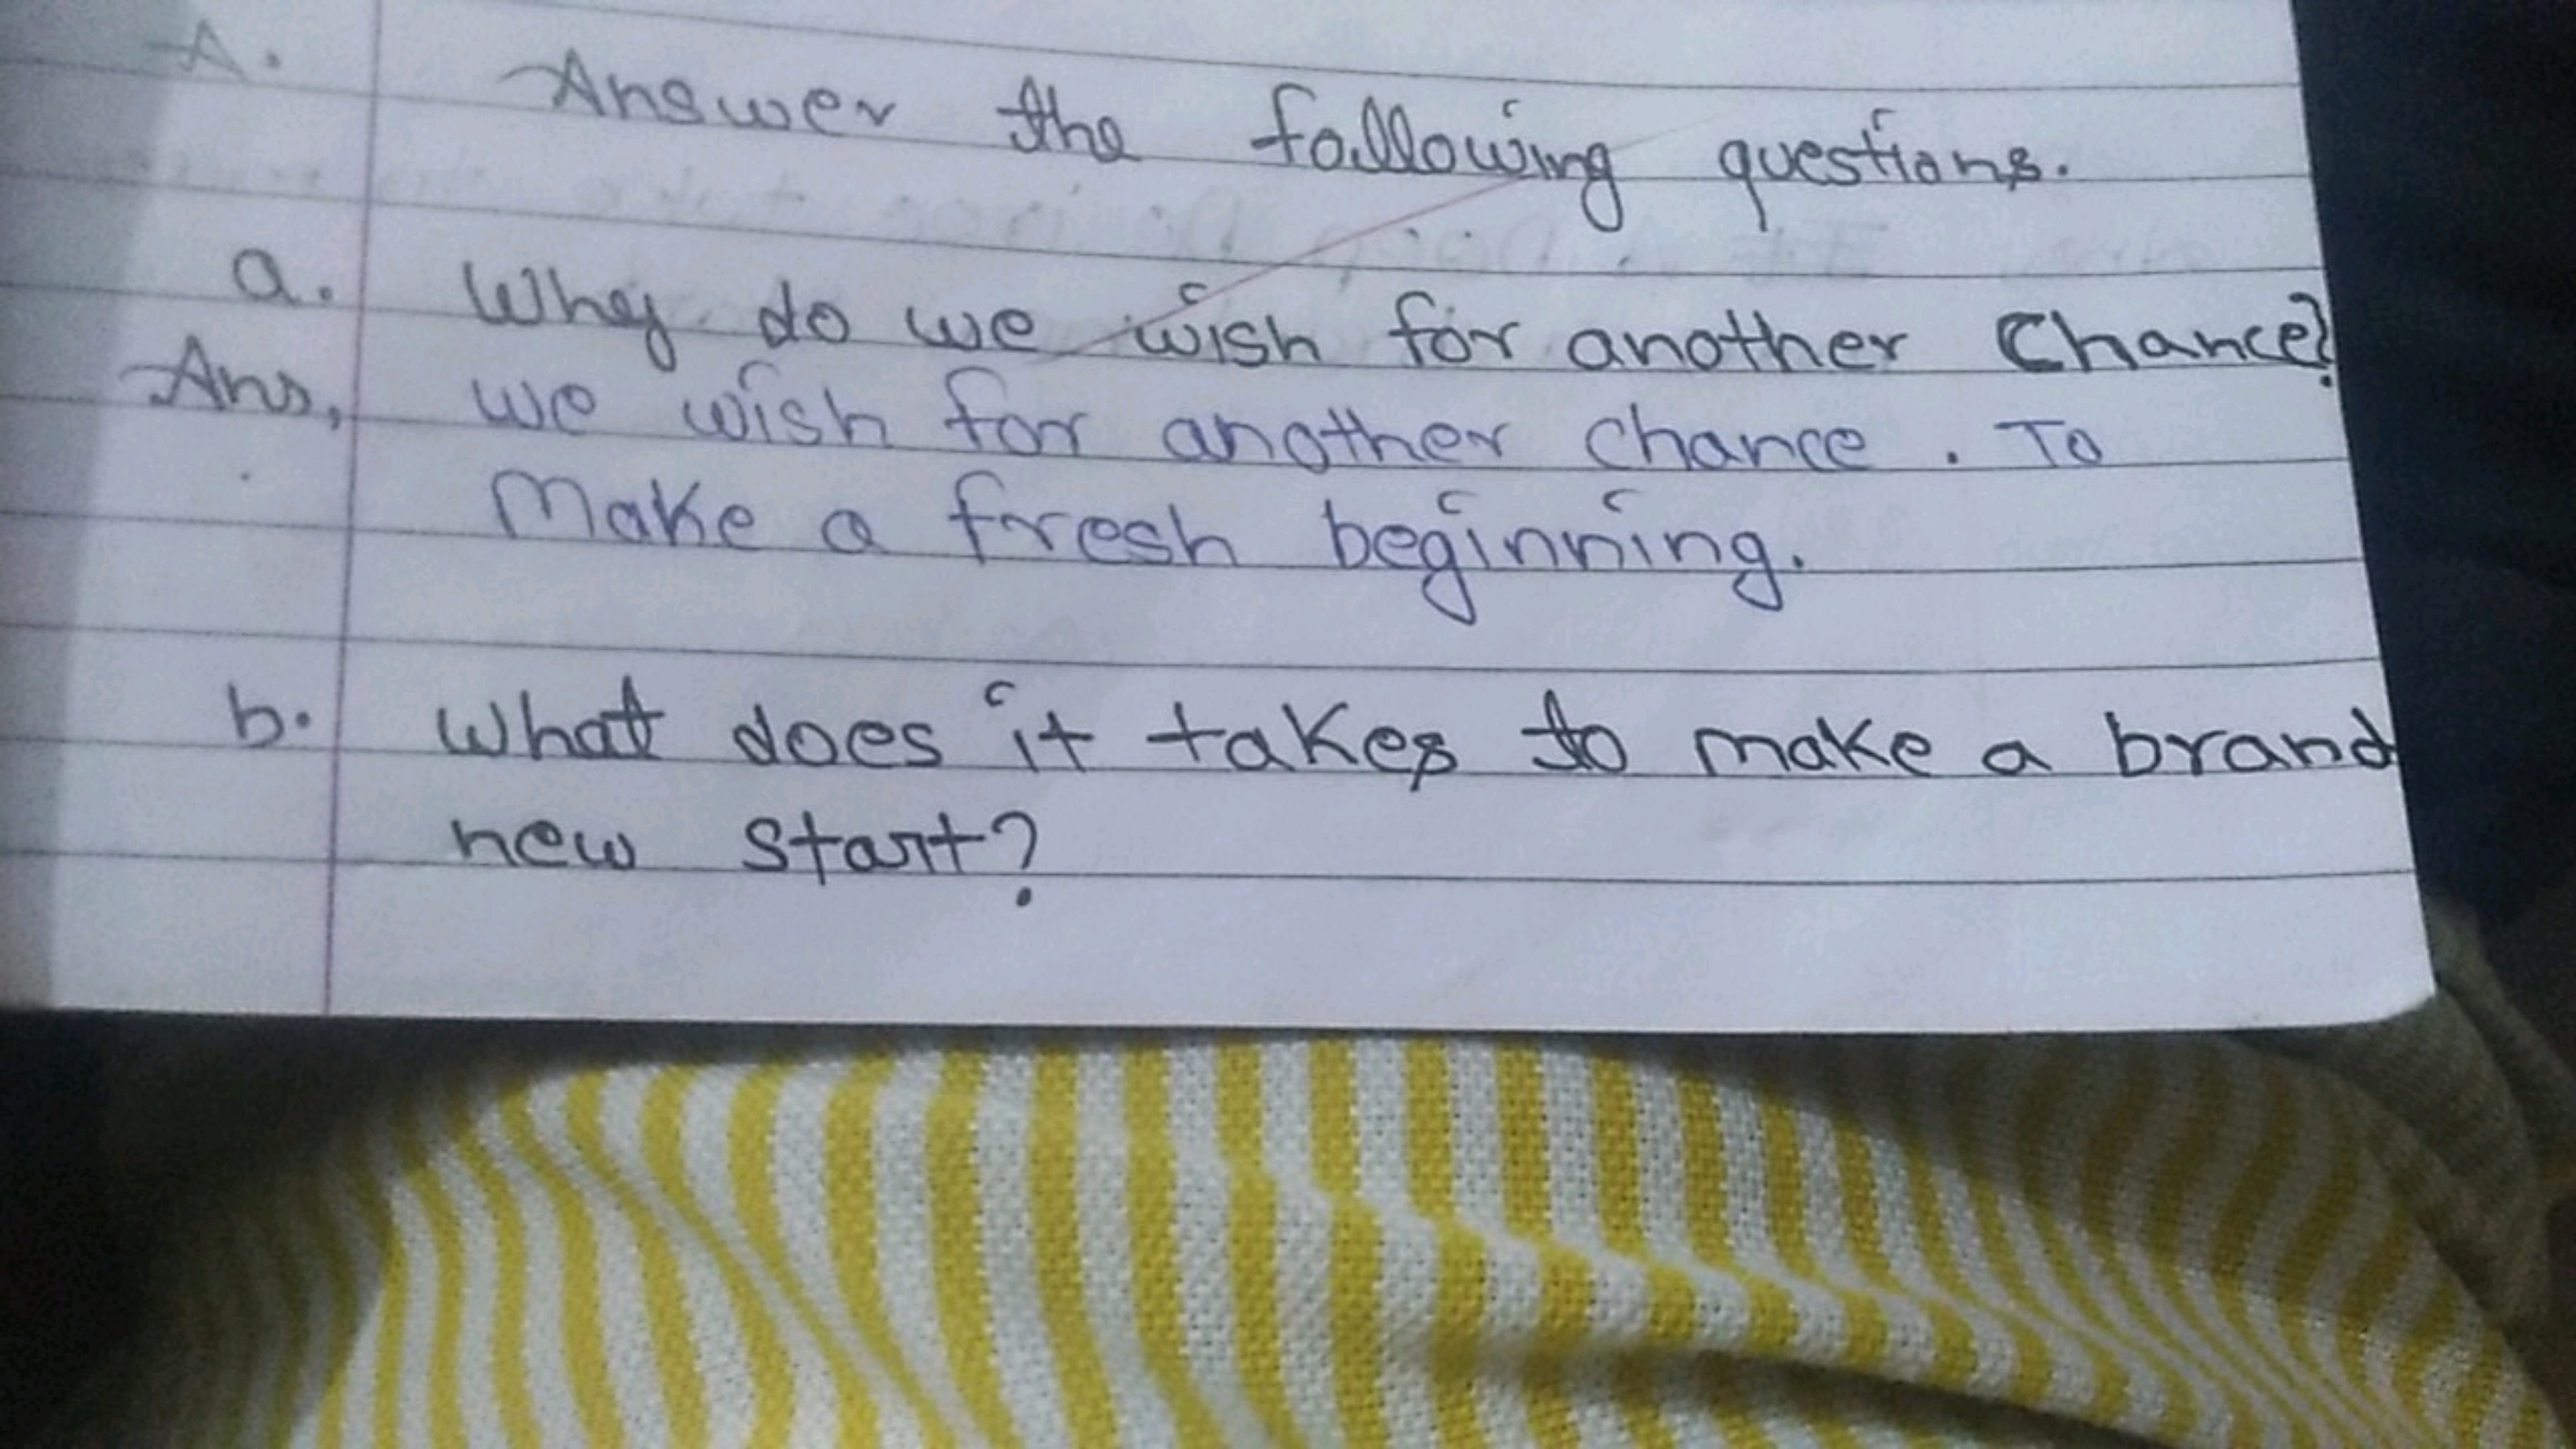 A. Answer the following questions.
a. Why do we wish for another Chance?
Ans, we wish for another chance. To
Make a fresh beginning.
b. What does it takes to make a brand
new start?